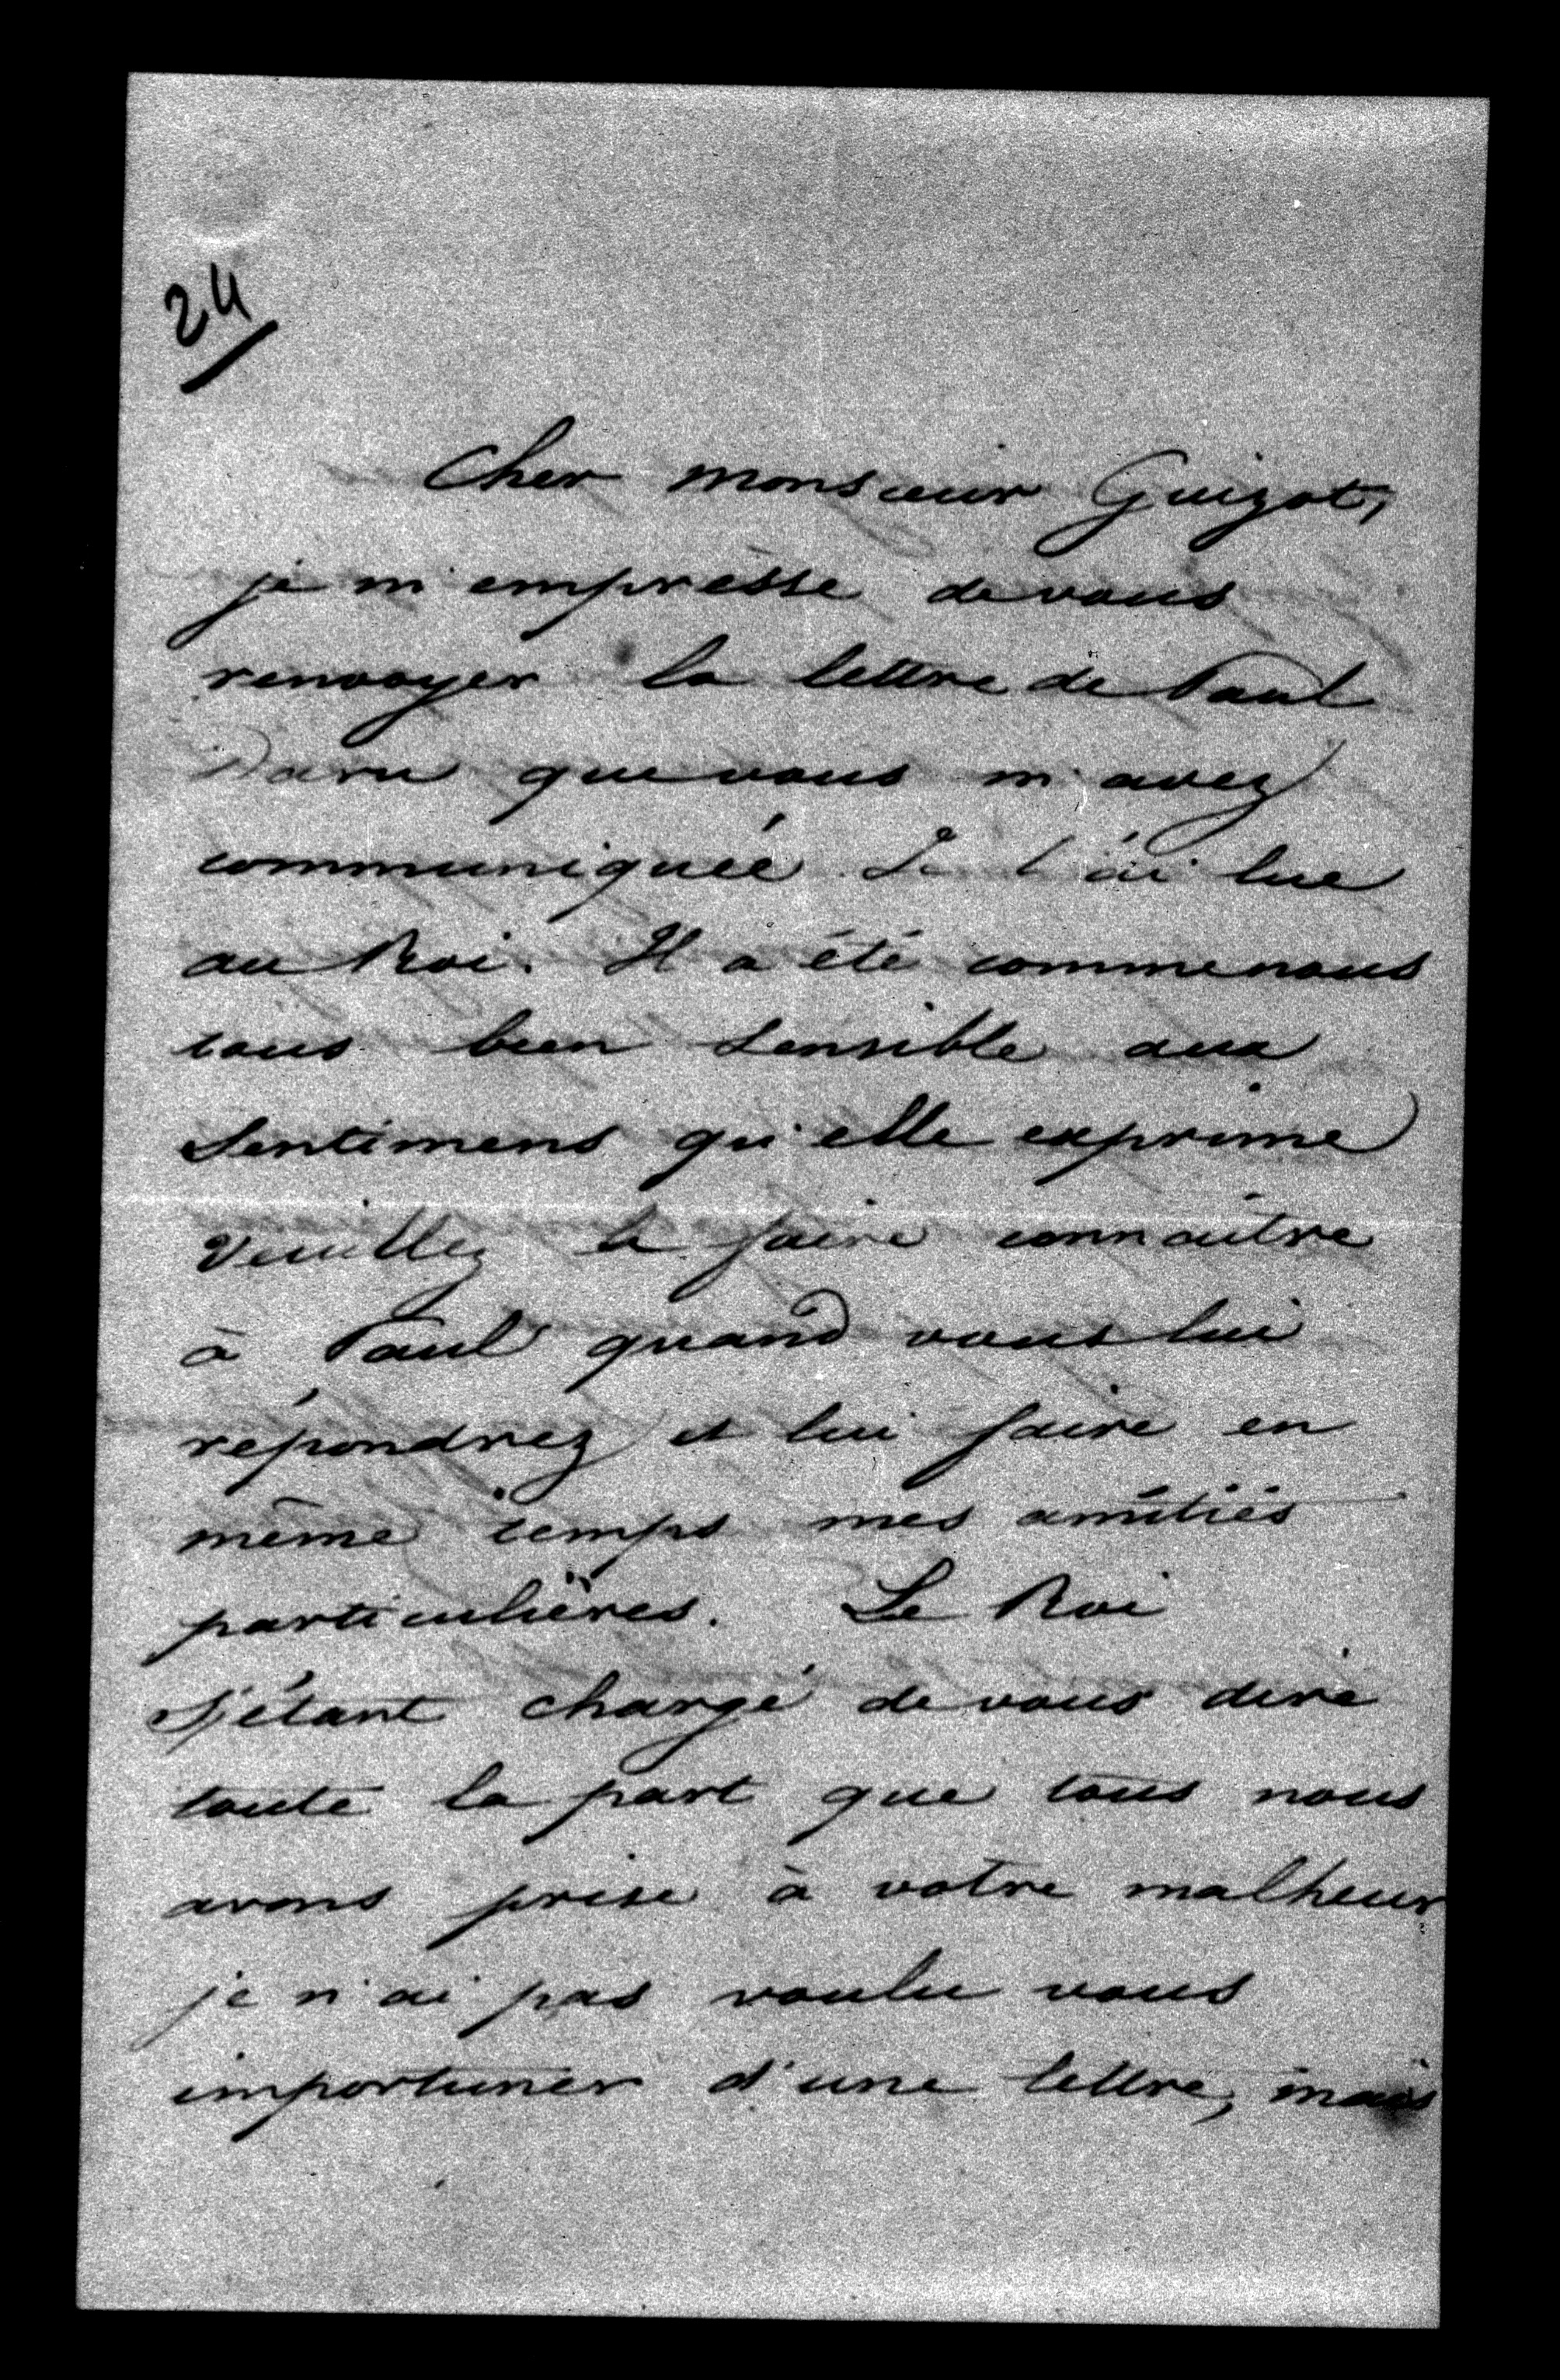 24
Cher monsieur Guizot,
je m'empresse de vous
renvoyer la lettre de Paul
Daru que vous m'avez
communiquée. Je l'ai lue
au Roi. Il a été comme nous
tous bien sensible aux
sentimens qu'elle exprime
Veuillez le faire connaître
à Paul quand vous lui
répondrez et lui faire en
même temps mes amitiés
particulières. Le Roi
s'étant chargé de vous dire
toute la part que tous nous
avons prise à votre malheur
je n'ai pas voulu vous
importuner d'une lettre, mais